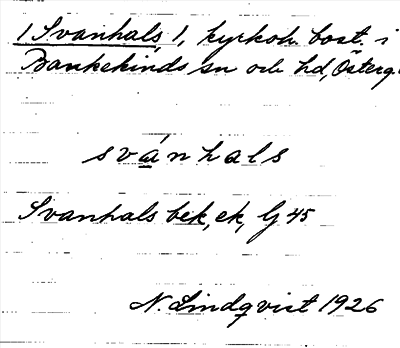 1 Svanhals 1, kyrkoh. bost. i
Bankekinds sn och hd, Österg.
svánhals
Svanhals bek, ek, G 45
N. Lindqvist 1926